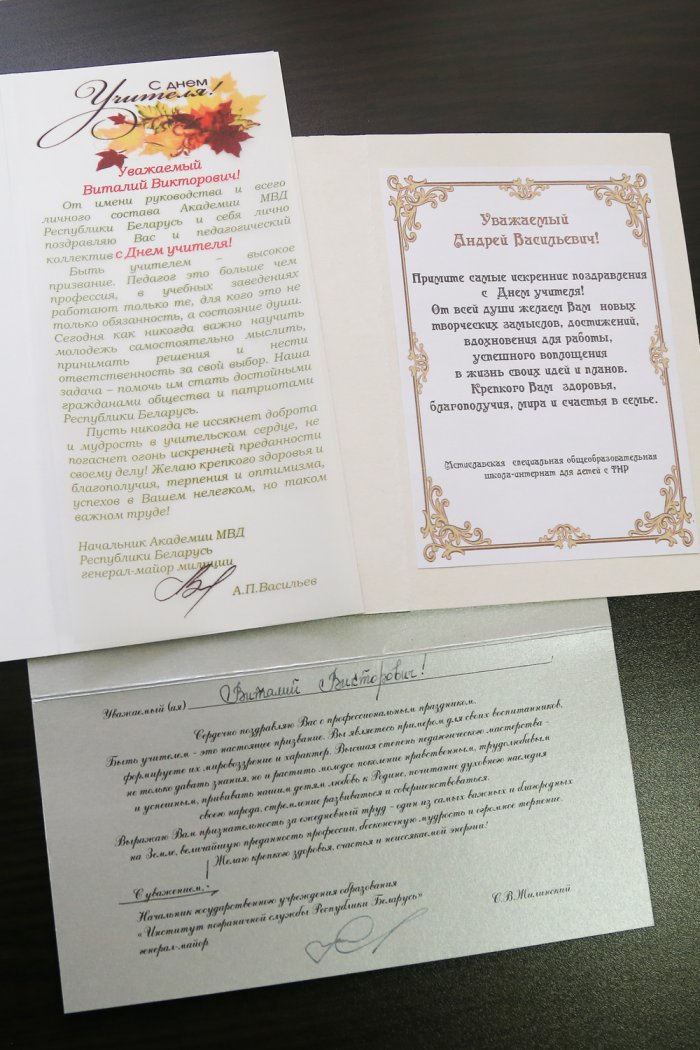 С днем
Учителя!
Уважаемый
Виталий Викторович!
От имени руководства и всего
личного состава Академии МВД
Республики Беларусь и себя лично
поздравляю Вас и педагогический
коллектив с Днем учителя!
Быть учителем – высокое
призвание. Педагог это больше чем
профессия, в учебных заведениях
работают только те, для кого это не
только обязанность, а состояние души.
Сегодня как никогда важно научить
молодежь самостоятельно мыслить,
принимать решения и нести
ответственность за свой выбор. Наша
задача – помочь им стать достойными
гражданами общества и патриотами
Республики Беларусь.
Пусть никогда не иссякнет доброта
и мудрость в учительском сердце, не
погаснет огонь искренней преданности
своему делу! Желаю крепкого здоровья и
благополучия, терпения и оптимизма,
успехов в Вашем нелегком, но таком
важном труде!
Начальник Академии МВД
Республики Беларусь
генерал-майор милиции
А.П.Васильев
Уважаемый
Андрей Васильевич!
Примите самые искренние поздравления
с Днем учителя!
От всей души желаем Вам новых
творческих замыслов, достижений,
вдохновения для работы,
успешного воплощения
в жизнь своих идей и планов.
Крепкого Вам здоровья,
благополучия, мира и счастья в семье.
Мстиславская специальная общеобразовательная
школа-интернат для детей с ТНР
Уважаемый (ая) Виталий Викторович!
Сердечно поздравляю Вас с профессиональным праздником.
Быть учителем - это настоящее призвание. Вы являетесь примером для своих воспитанников,
формируете их мировоззрение и характер. Высшая степень педагогического мастерства -
не только давать знания, но и растить молодое поколение нравственным, трудолюбивым
и успешным, прививать нашим детям любовь к Родине, почитание духовного наследия
своего народа, стремление развиваться и совершенствоваться.
Выражаю Вам признательность за ежедневный труд - один из самых важных и благородных
на Земле, величайшую преданность профессии, бесконечную мудрость и огромное терпение.
Желаю крепкого здоровья, счастья и неиссякаемой энергии!
С уважением,
Начальник государственного учреждения образования
«Институт пограничной службы Республики Беларусь»
генерал-майор
С.В.Жилинский